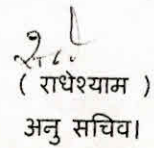 ( राधेश्याम )
अनु सचिव।